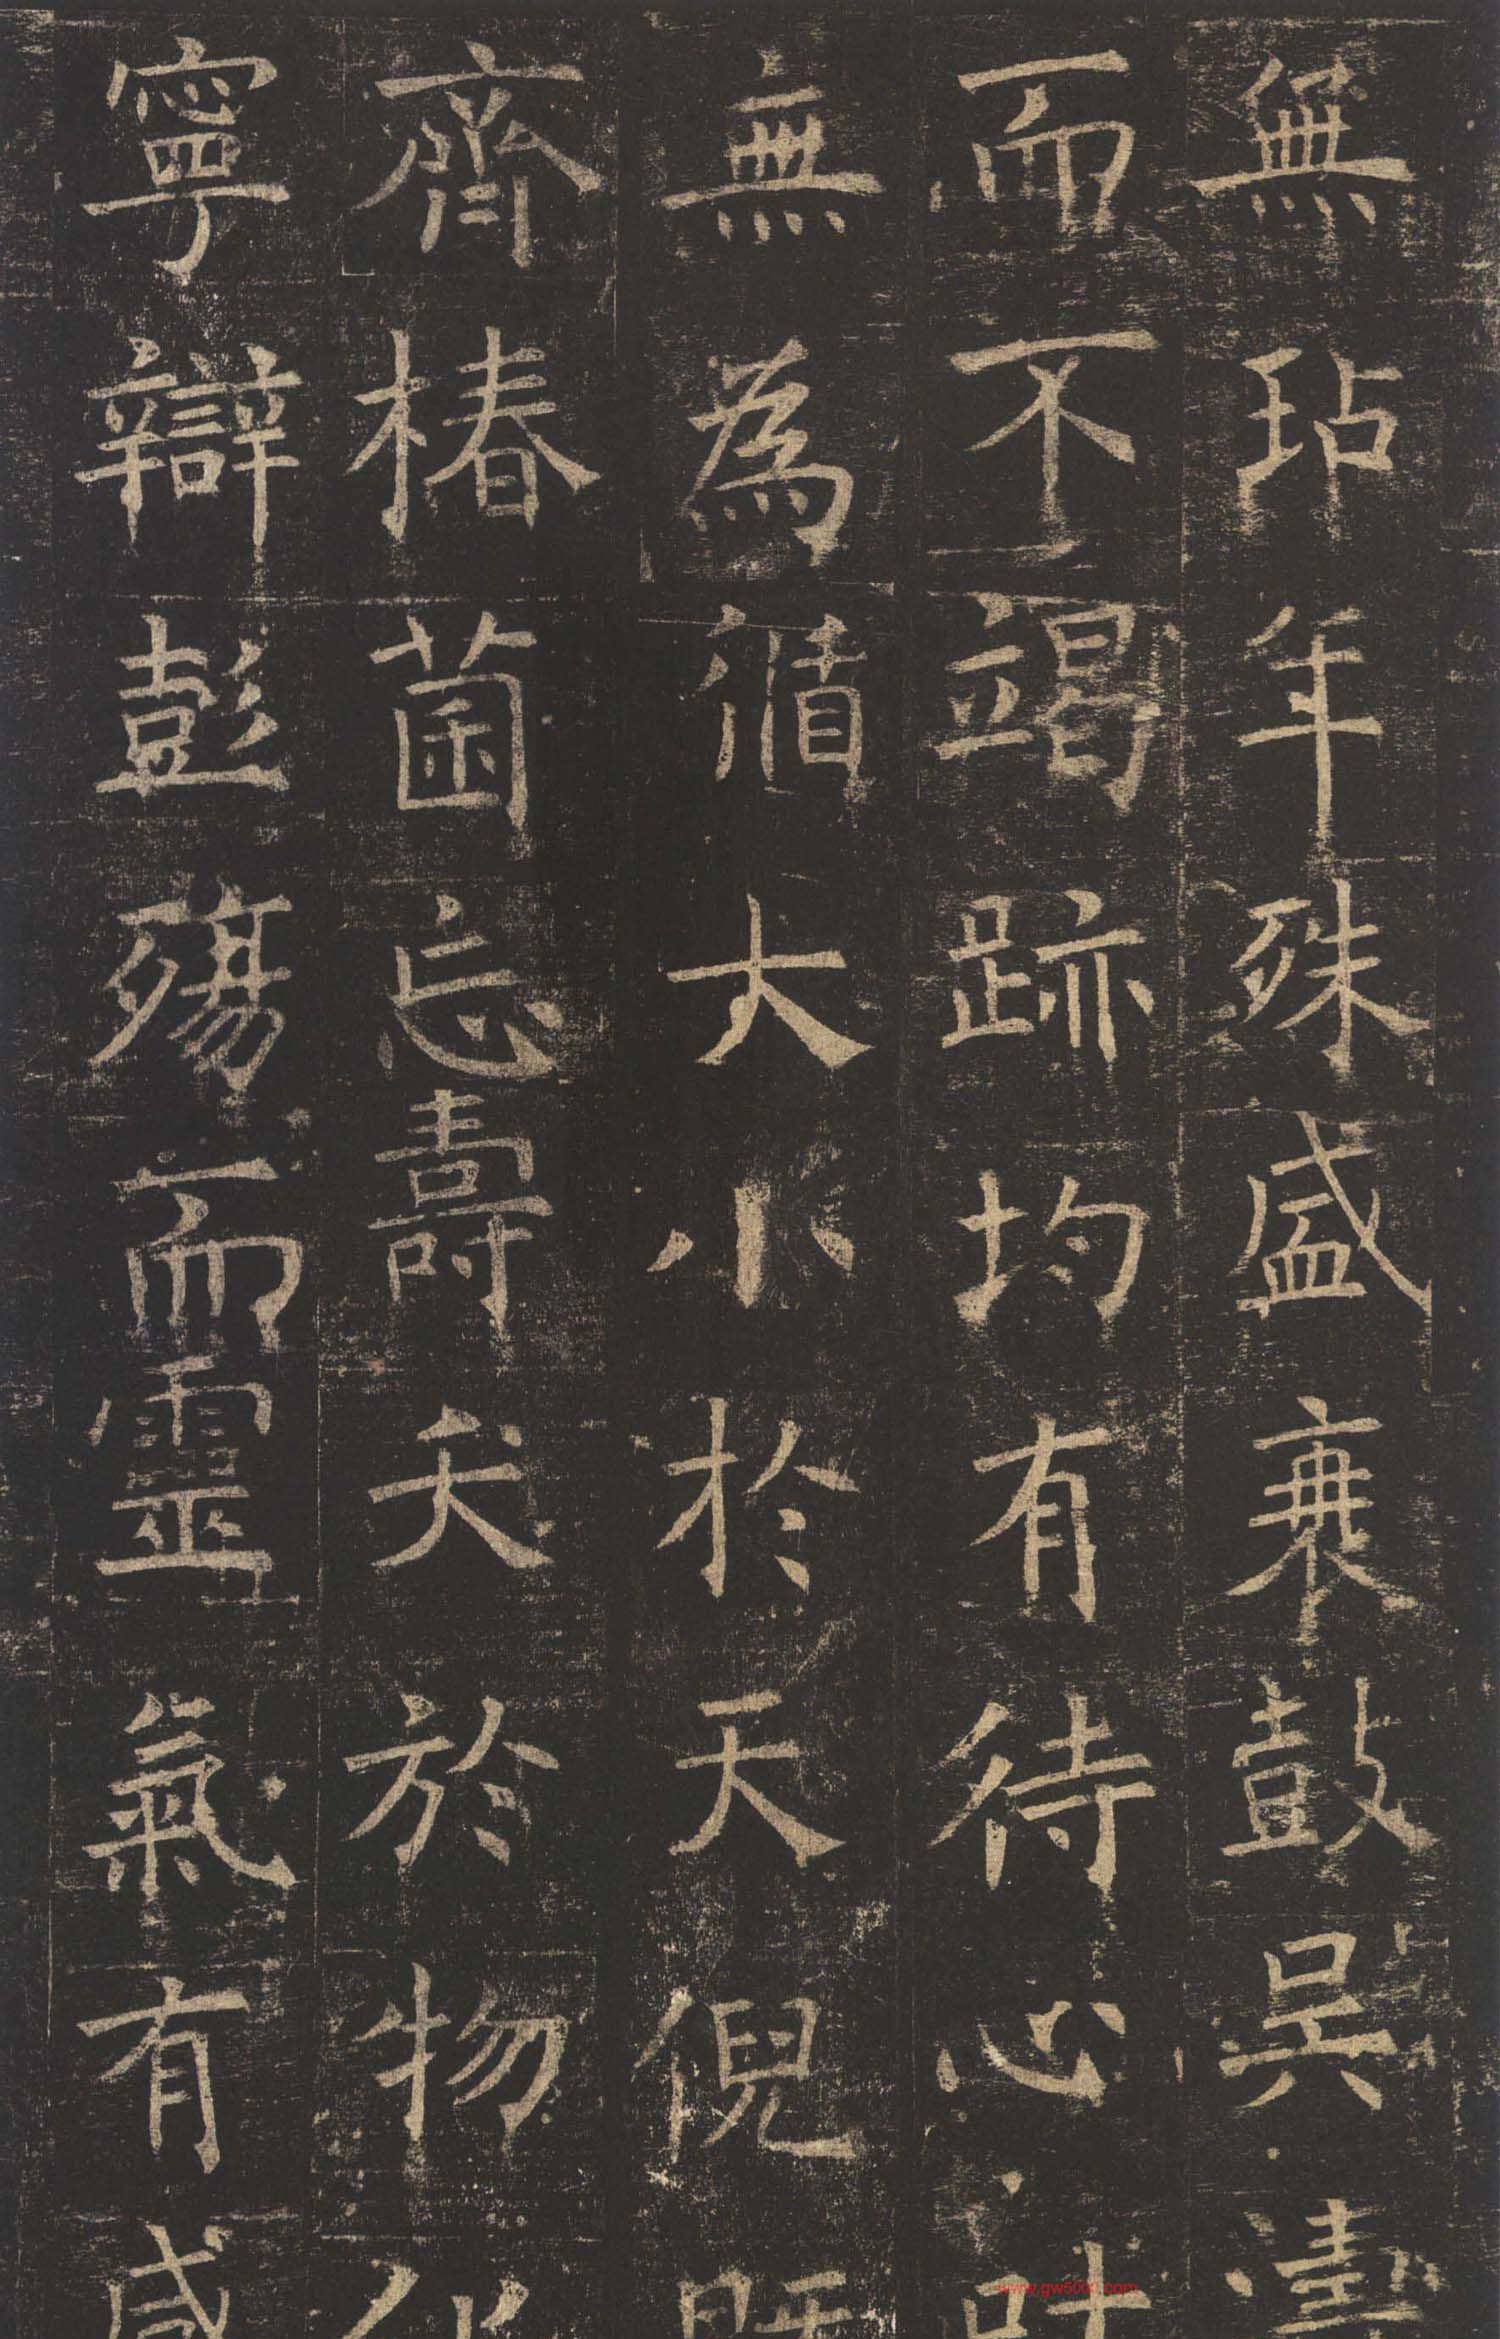 無玷年殊盛衰鼓吴濤
而不竭跡均有待心時
無為循大小於天倪既
齊椿菌忘壽夭於物化
寧辯彭殤而靈氣有感
www.gw5000.com